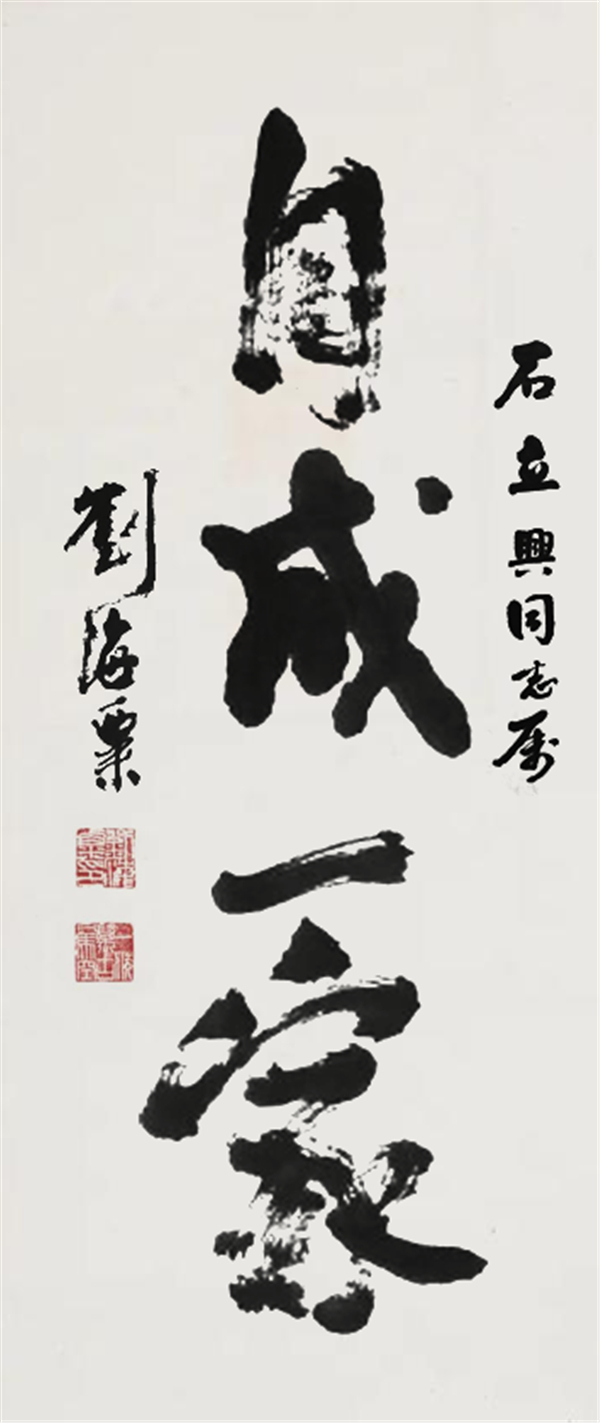 石立興同志屬
自成一家
劉海粟